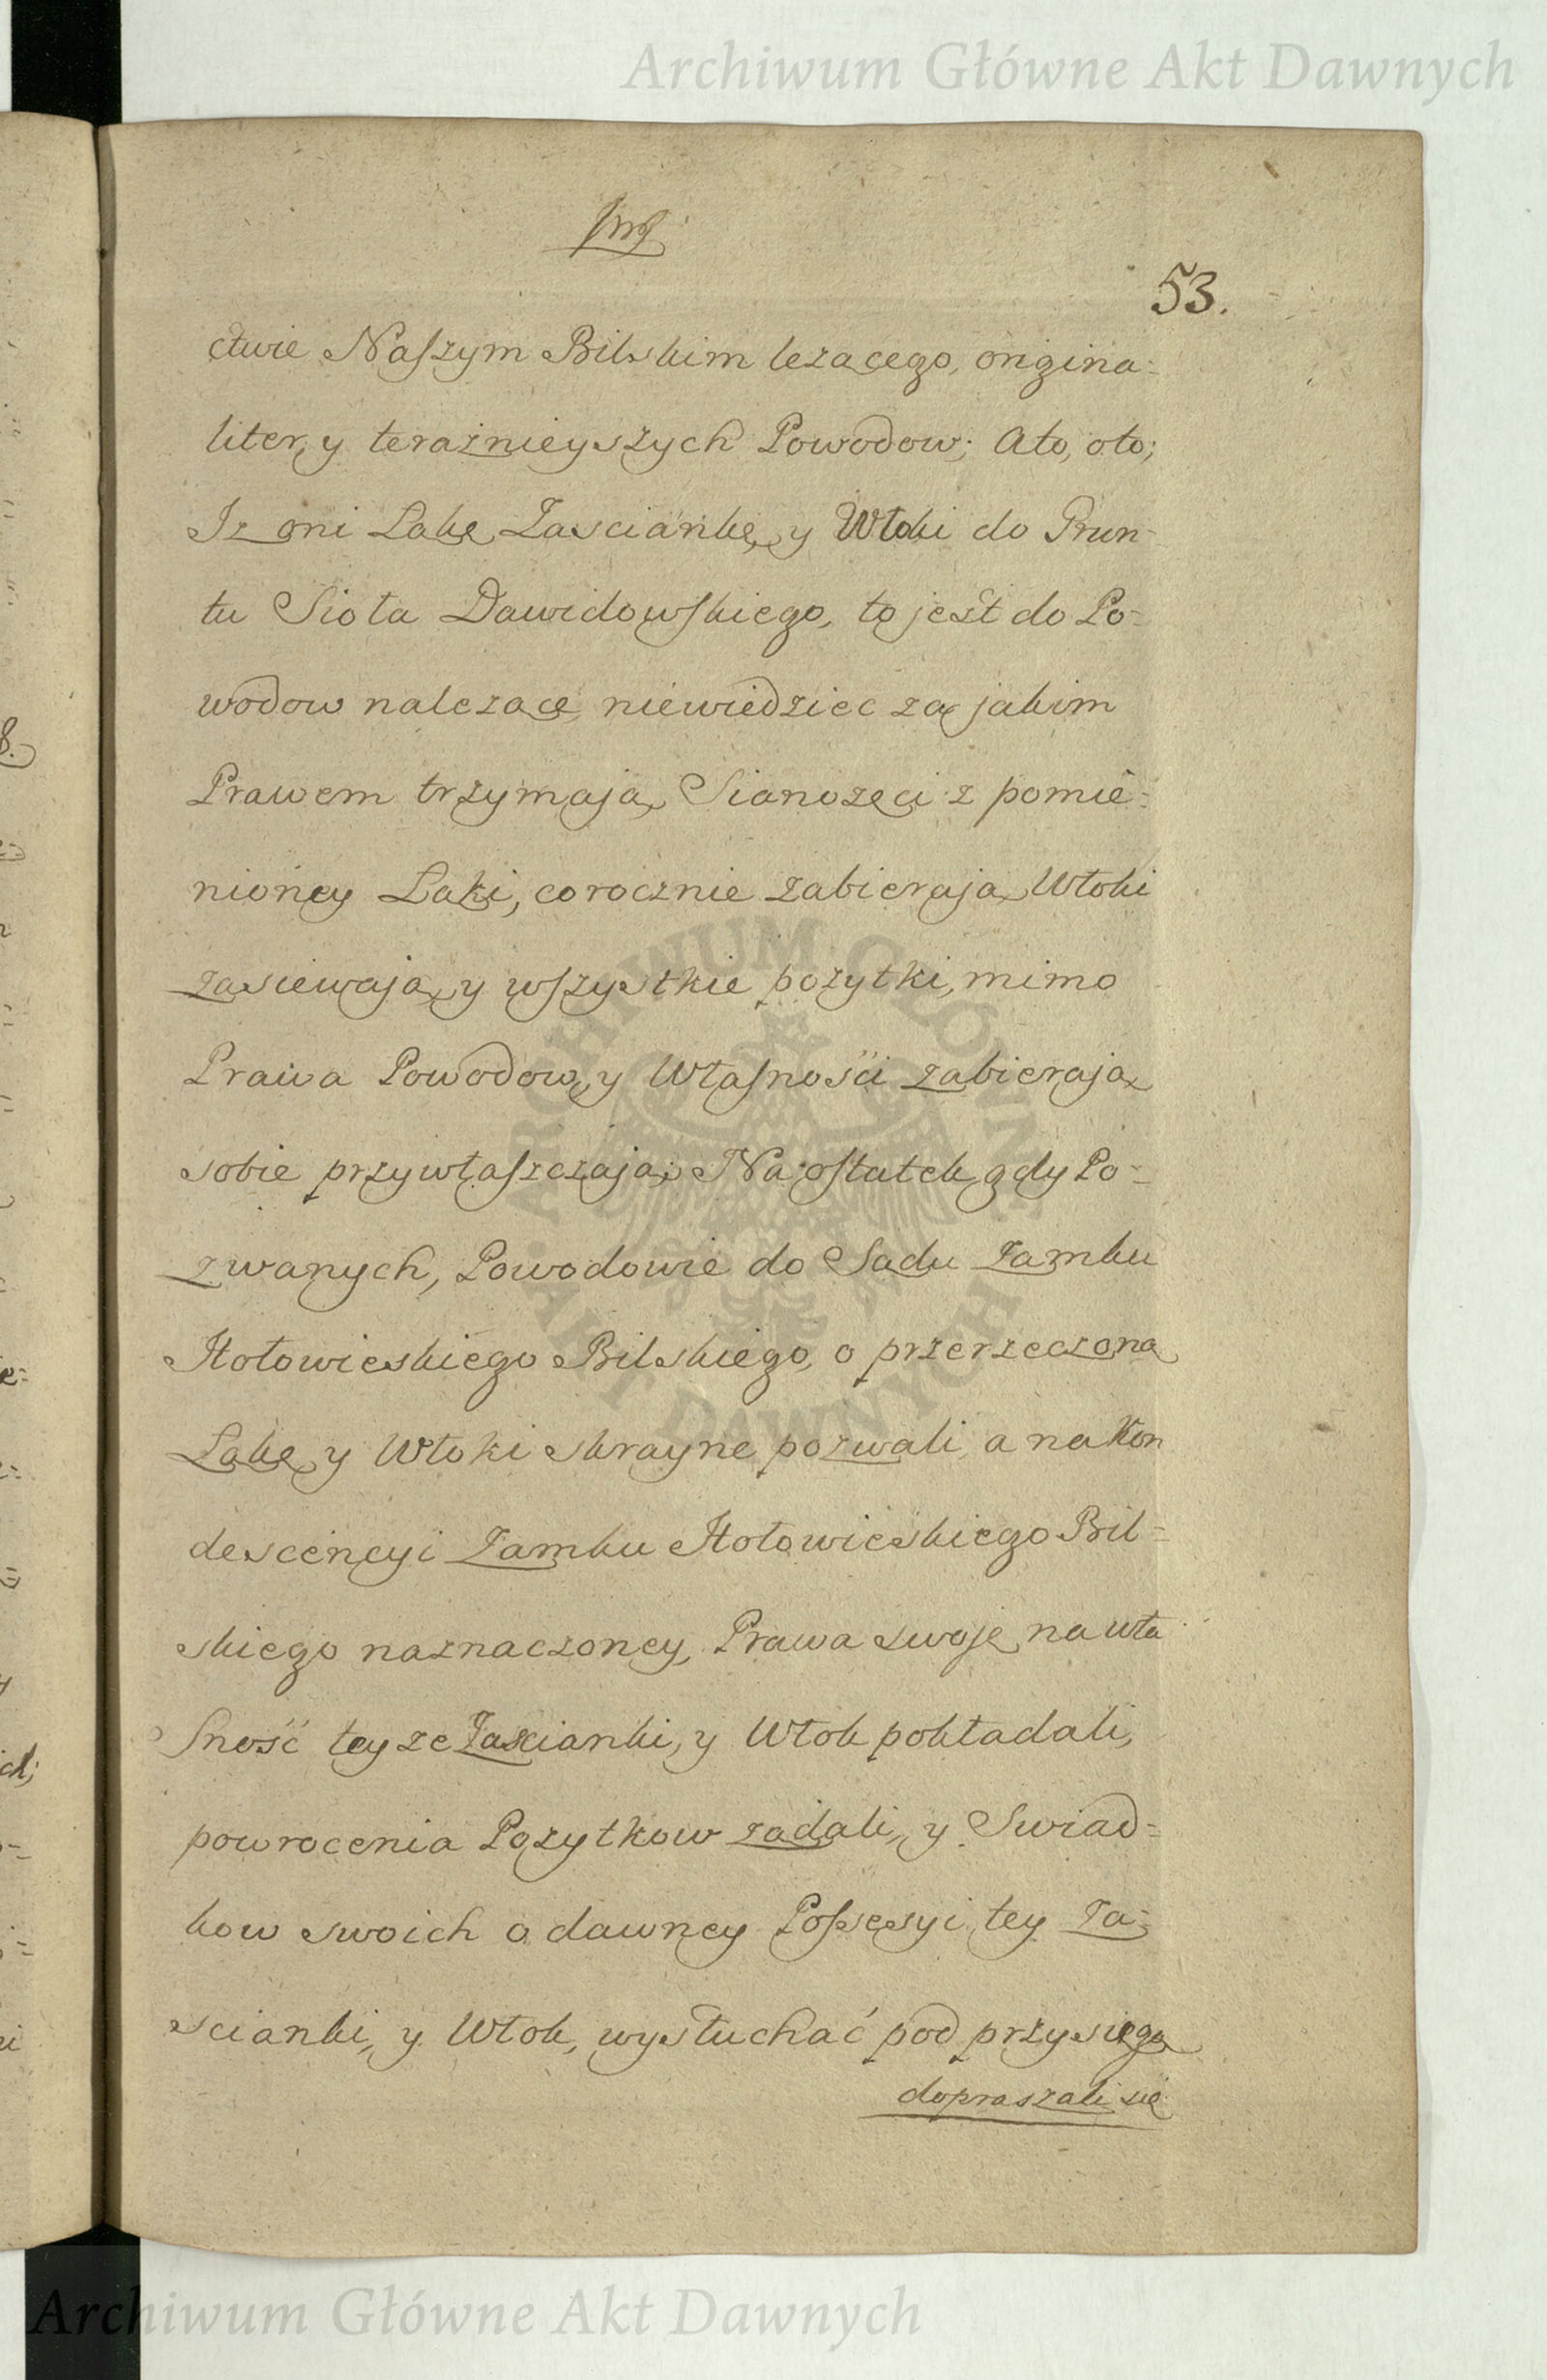 Archiwum Główne Akt Dawnych
53.
ctwie Naszym Bilskim lezącego, origina=
liter, y teraznieyszych Powodow; Ato, oto;
Iz oni Łąkę Zasciankę, y Włoki do Grun-
tu Sioła Dawidowskiego, to jest do Po-
wodow nalezące, niewiedziec za jakim
Prawem trzymaią, Sianozęci z pomie=
nioney Łąki, corocznie zabieraią, Włoki
zasiewaią, y wszystkie pozytki, mimo
Prawa Powodow, y Własnosci zabieraią,
sobie przywłaszczaią; Na ostatek gdy Po-
zwanych, Powodowie do Sądu Zamku
Hołowieskiego Bilskiego, o przerzeczoną
Łąkę, y Włoki skrayne pozwali, a na Kon
descencyi Zamku Hołowieskiego Bil=
skiego naznaczoney, Prawa swoje na wła
sność teyze Zascianki, y Włok pokładali,
powrocenia Pozytkow ządali, y Swiad=
kow swoich o dawney Possesyi tey Za=
scianki, y Włok, wysłuchać pod przysięgą
dopraszali się
ARCHIWUM GŁÓWNE AKT DAWNYCH
Archiwum Główne Akt Dawnych